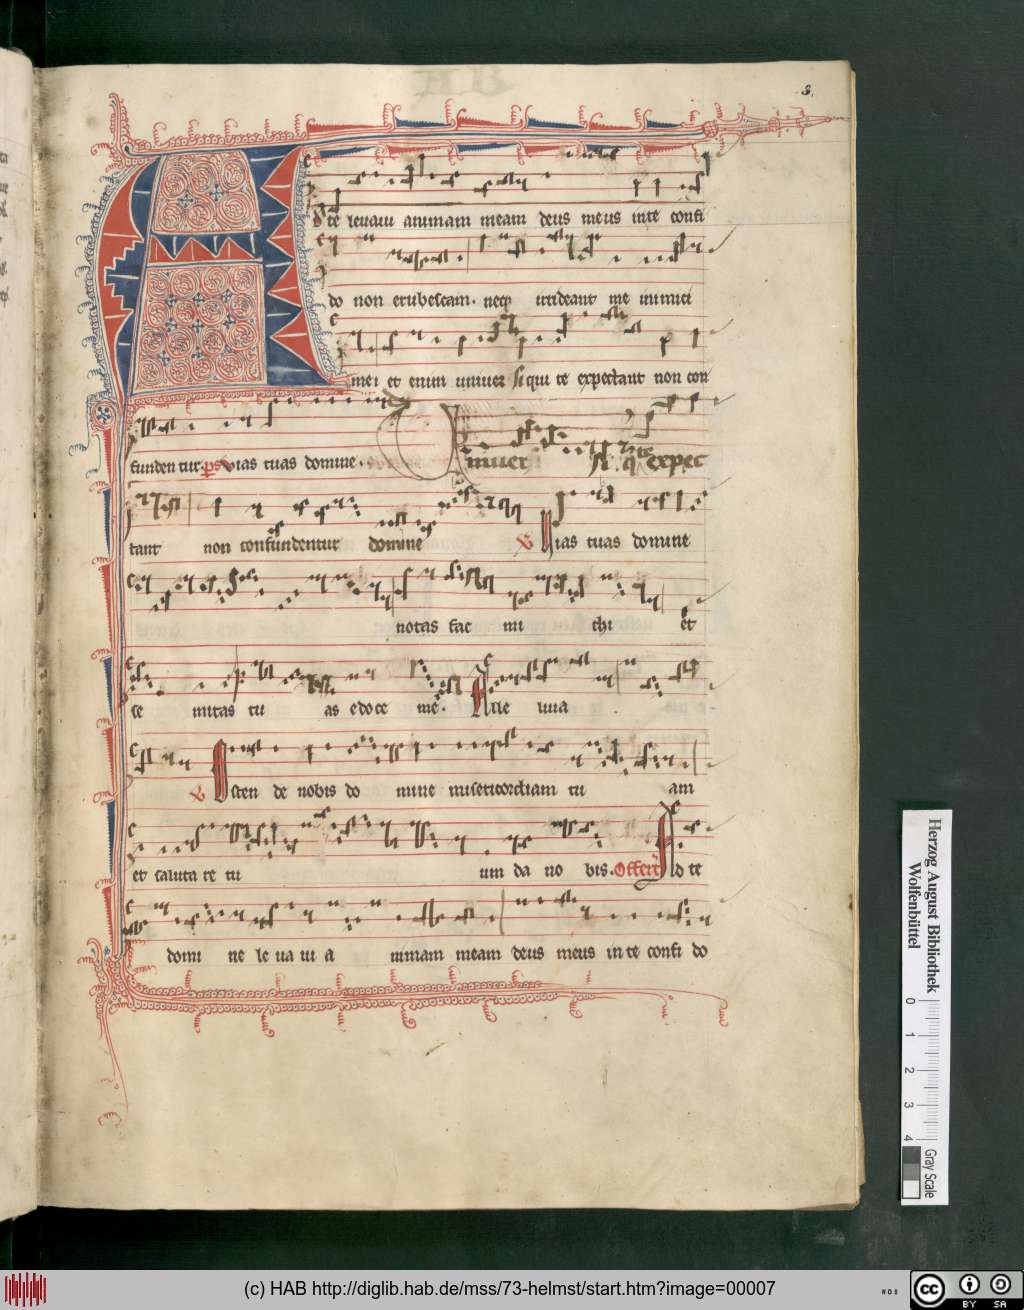 3.
A
d te leuaui animam meam deus meus inte confi
do non erubescam. neq irrideant me inimici
mei et enim uniuer si qui te expectant non con
fundentur. ps Vias tuas domine.
Vniuersi. q te expec
tant non confundentur domine V Vias tuas domine
notas fac mi chi et
se mitas tu as edoce me. Alle luia
V Osten de nobis do mine misericordiam tu am
et saluta re tu um da no bis. Offert Ad te
domi ne le ua ui a nimam meam deus meus in te confi do
Herzog August Bibliothek
Wolfenbüttel
0 1 2 3 4
Gray Scale
(c) HAB http://diglib.hab.de/mss/73-helmst/start.htm?image=00007
cc BY SA